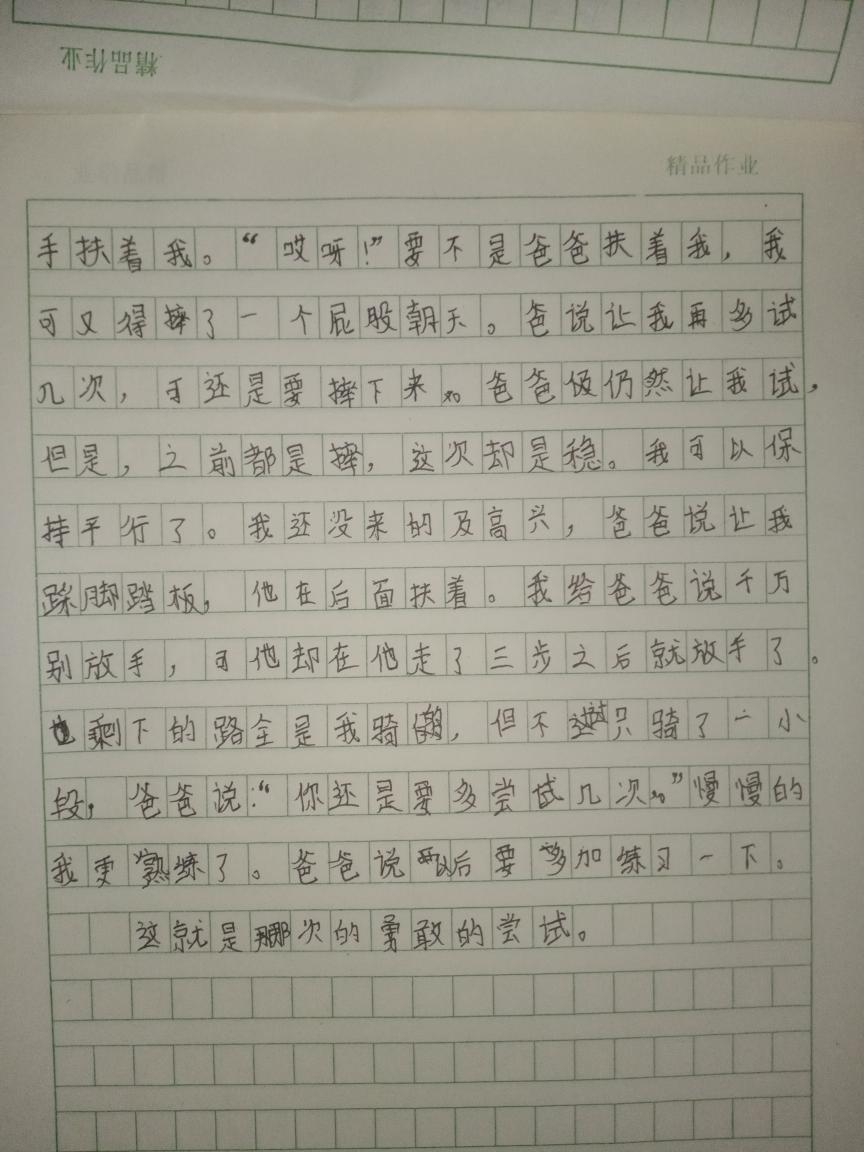 精品作业
精品作业
手扶着我。“哎呀!”要不是爸爸扶着我，我
可又得摔了一个屁股朝天。爸说让我再多试
几次，可还是要摔下来。爸爸仍然让我试，
但是，之前都是摔，这次却是稳。我可以保
持平行了。我还没来的及高兴，爸爸说让我
踩脚踏板，他在后面扶着。我给爸爸说千万
别放手，可他却在他走了三步之后就放手了。
剩下的路全是我骑的，但不过只骑了一小
段，爸爸说：“你还是要多尝试几次。”慢慢的
我更熟练了。爸爸说以后要多加练习一下。
这就是那次的勇敢的尝试。